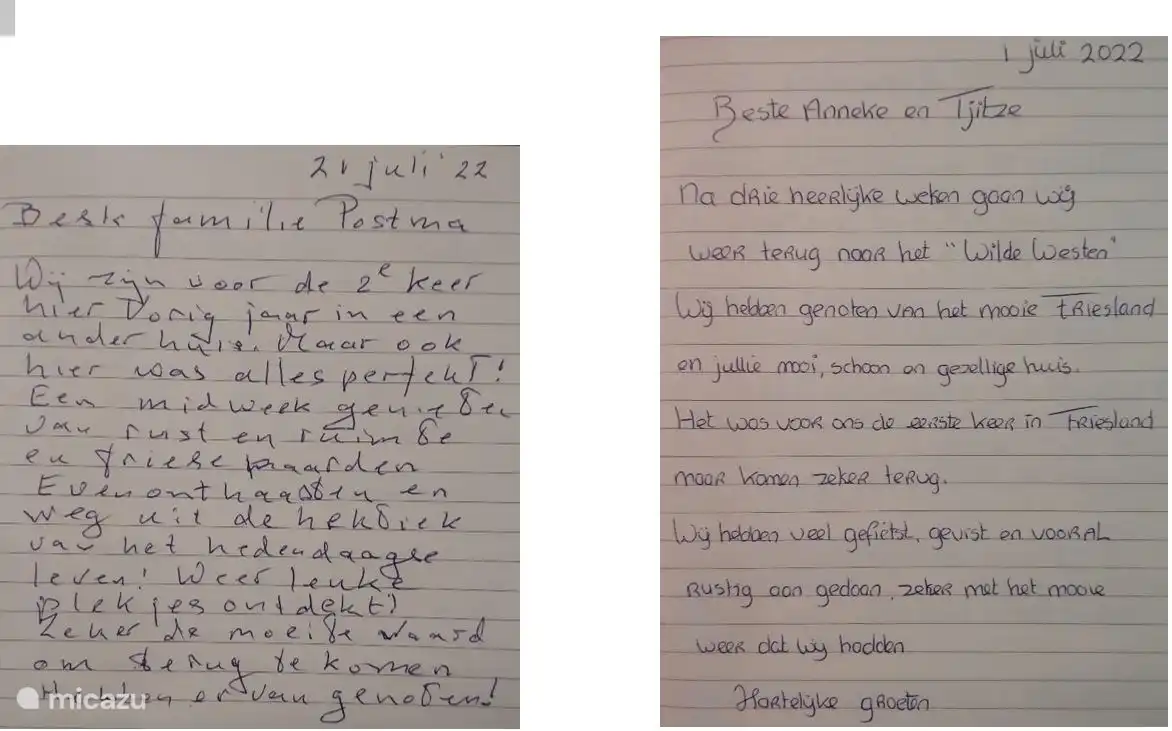 21 juli '22
Beste familie Postma
Wij zijn voor de 2e keer
hier Vorig jaar in een
ander huis. Maar ook
hier was alles perfekt!
Een midweek genieten
van rust en ruimte
en friese paarden
Even onthaasten en
weg uit de hektiek
van het hedendaagse
leven! Weer leuke
plekjes ontdekt)
Zeker de moeite waard
om terug te komen
Hebben er van genoten!
micazu
1 juli 2022
Beste Anneke en Tjitze
Na drie heerlijke weken gaan wij
weer terug naar het "Wilde Westen"
Wij hebben genoten van het mooie Friesland
en jullie mooi, schoon en gezellige huis.
Het was voor ons de eerste keer in Friesland
maar komen zeker terug.
Wij hebben veel gefietst, gevist en vooral
rustig aan gedaan, zeker met het mooie
weer dat wij hadden
Hartelijke groeten